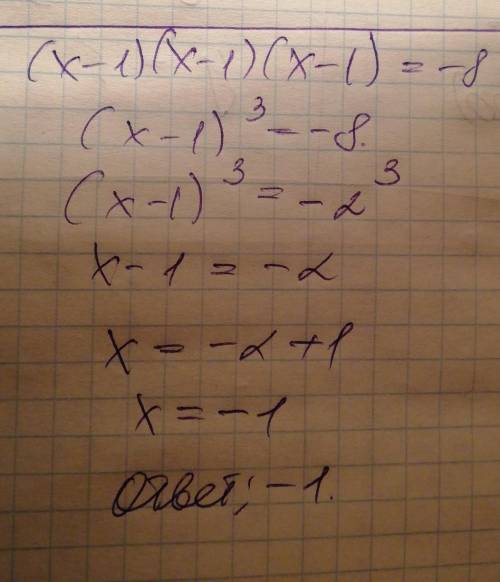 (x-1)(x-1)(x-1) = -8
(x-1)³ = -8.
(x-1)³ = -2³
x-1 = -2
x = -2+1
x = -1
Ответ; -1.